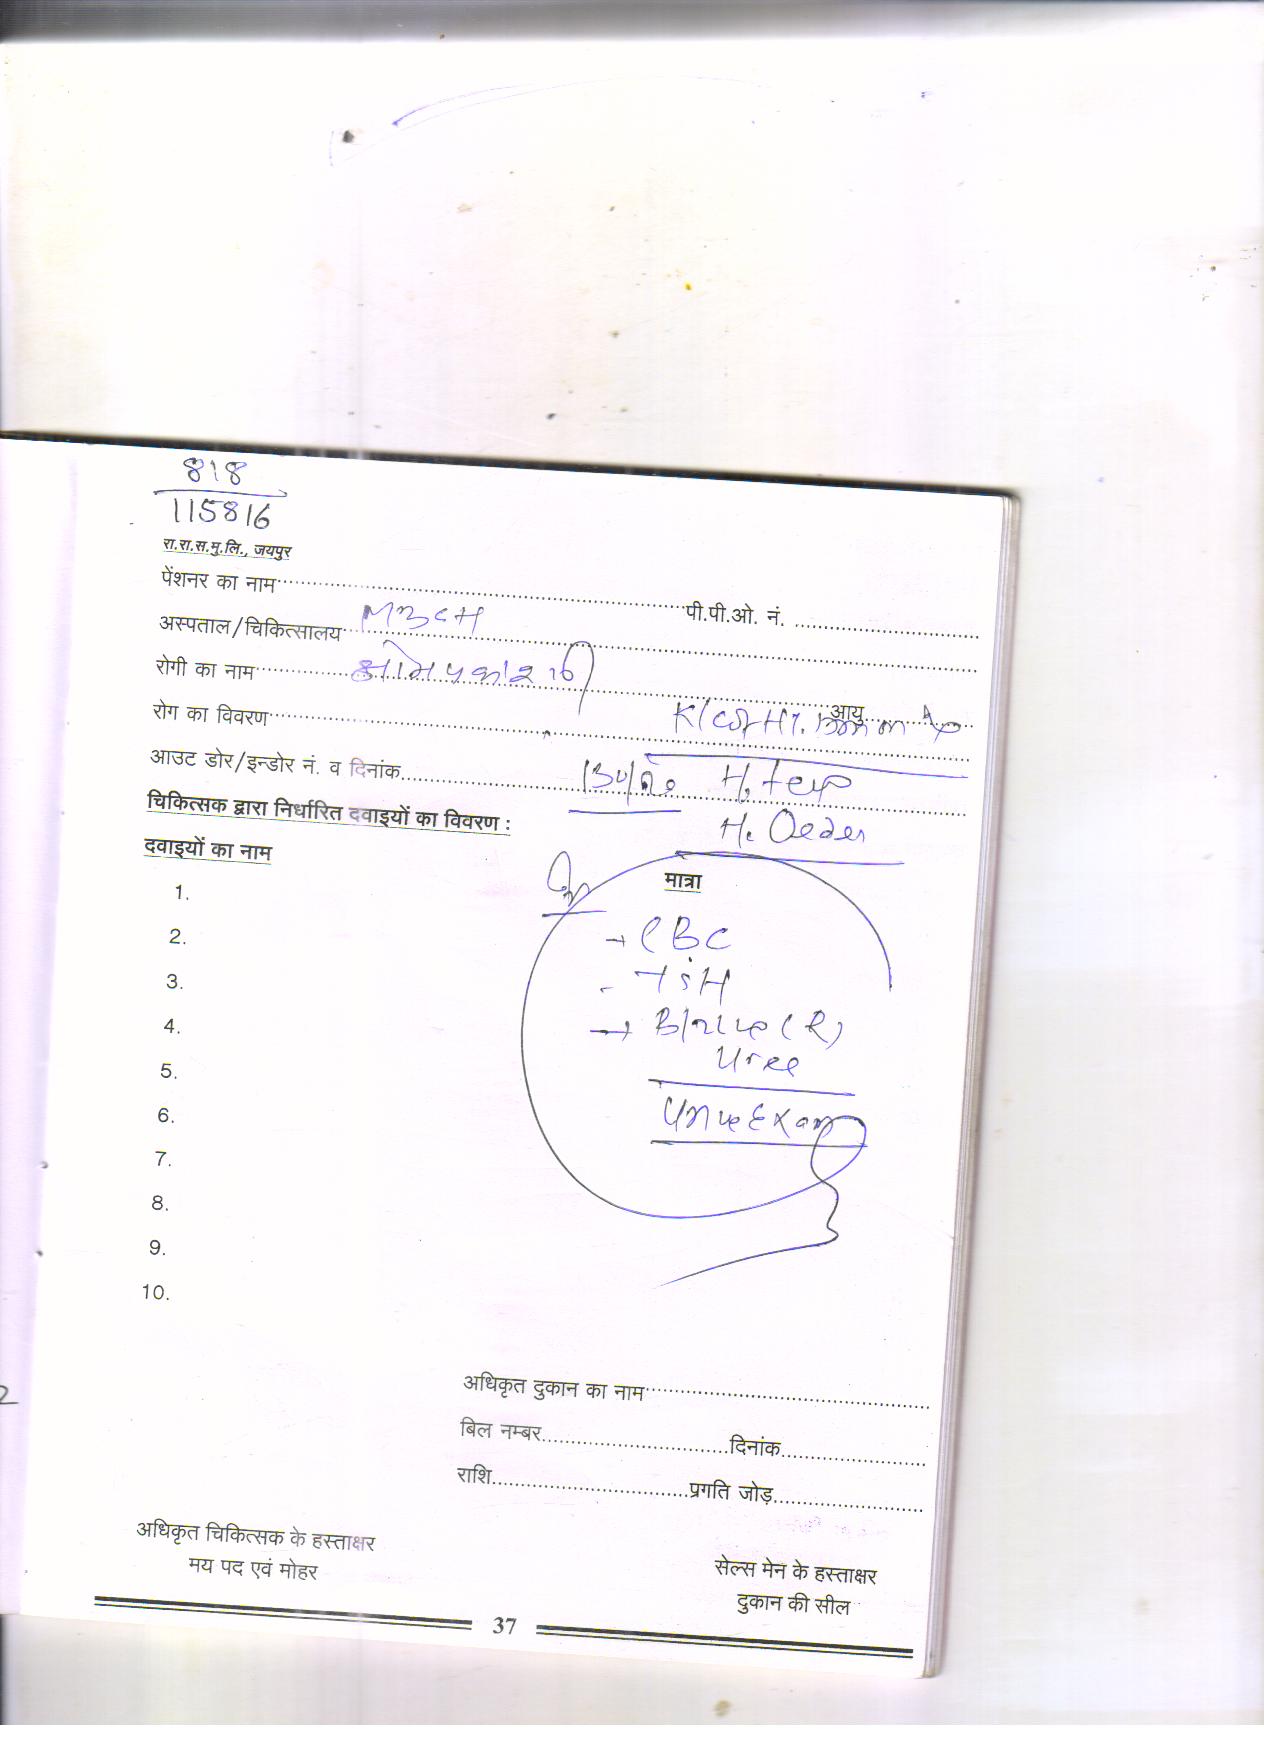 818
115816
रा.रा.स.मु.लि., जयपुर
पेंशनर का नाम पी.पी.ओ. नं.
अस्पताल/चिकित्सालय MBGH
रोगी का नाम ओम प्रकाश जी
रोग का विवरण आयु
K/C of HT.
आउट डोर/इन्डोर नं. व दिनांक 130/70
चिकित्सक द्वारा निर्धारित दवाइयों का विवरण :
दवाइयों का नाम
मात्रा
1.
2. → CBC
3. - TSH
4. → (R)
Urea
5.
6. Urine Exam
7.
8.
9.
10.
2
अधिकृत दुकान का नाम
बिल नम्बर दिनांक
राशि प्रगति जोड़
अधिकृत चिकित्सक के हस्ताक्षर
मय पद एवं मोहर
सेल्स मेन के हस्ताक्षर
दुकान की सील
37